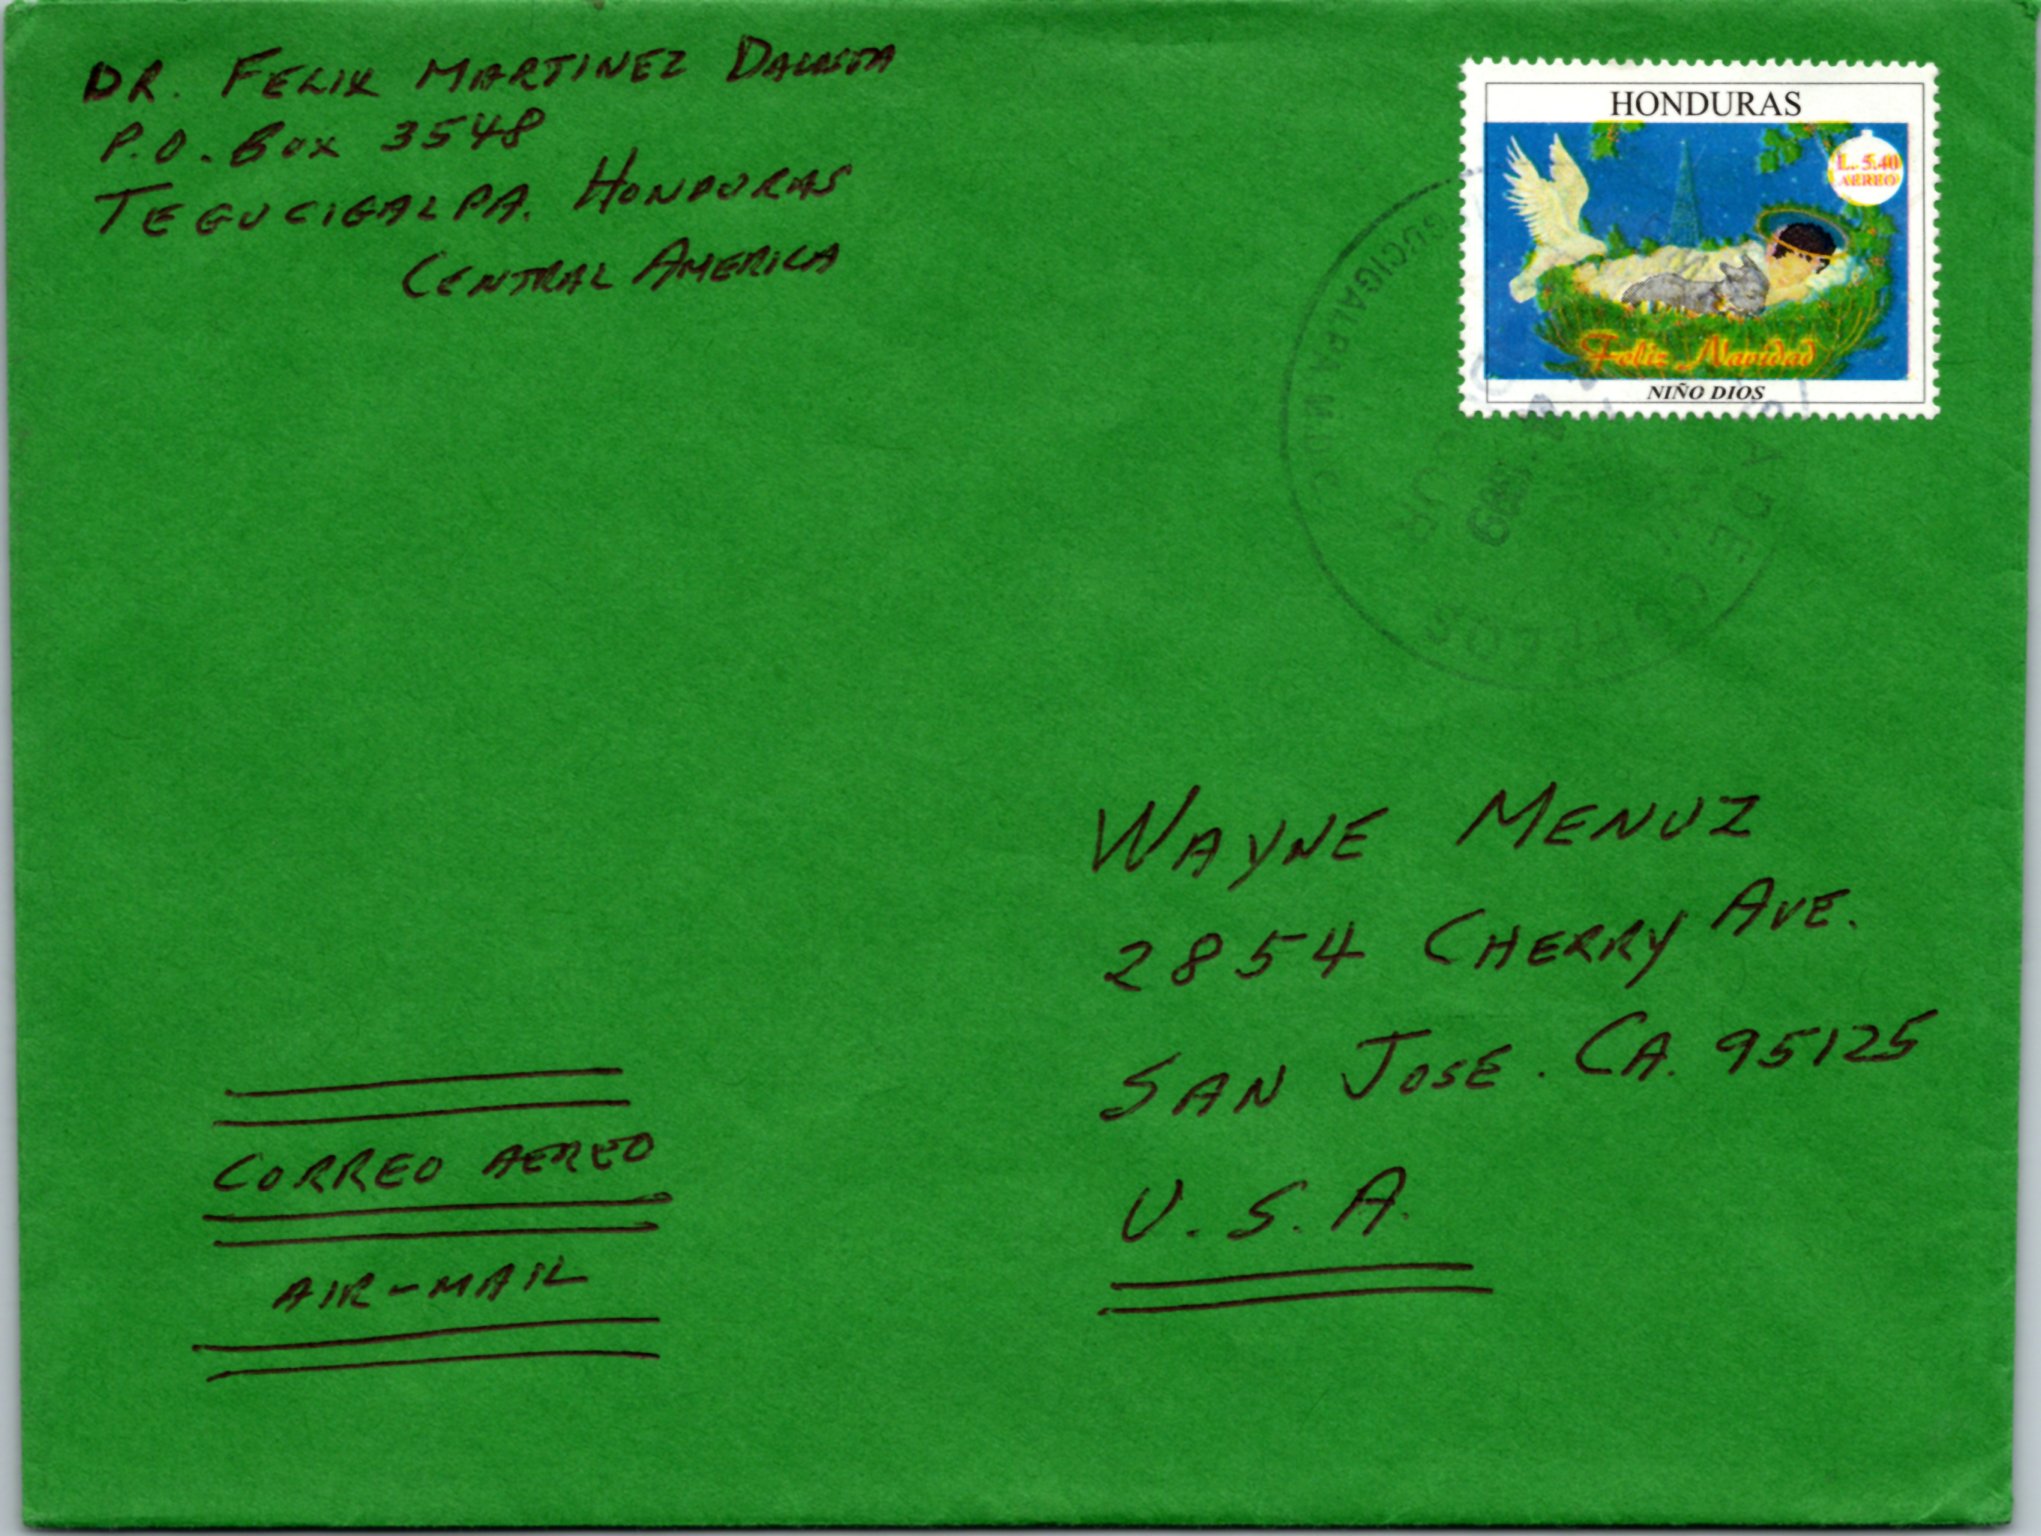 DR. FELIX MARTINEZ
P.O. BOX 3548
TEGUCIGALPA. HONDURAS
CENTRAL AMERICA
HONDURAS
L. 5.40
AEREO
Feliz Navidad
NIÑO DIOS
GUCIGALPA M.D.C.
WAYNE MENUZ
2854 CHERRY AVE.
SAN JOSE. CA. 95125
U.S.A.
CORREO AEREO
AIR-MAIL